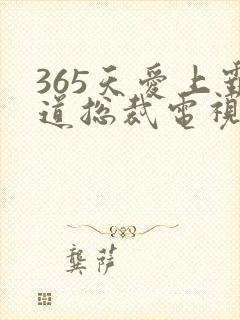 365天愛上霸
道總裁電視
龔萨